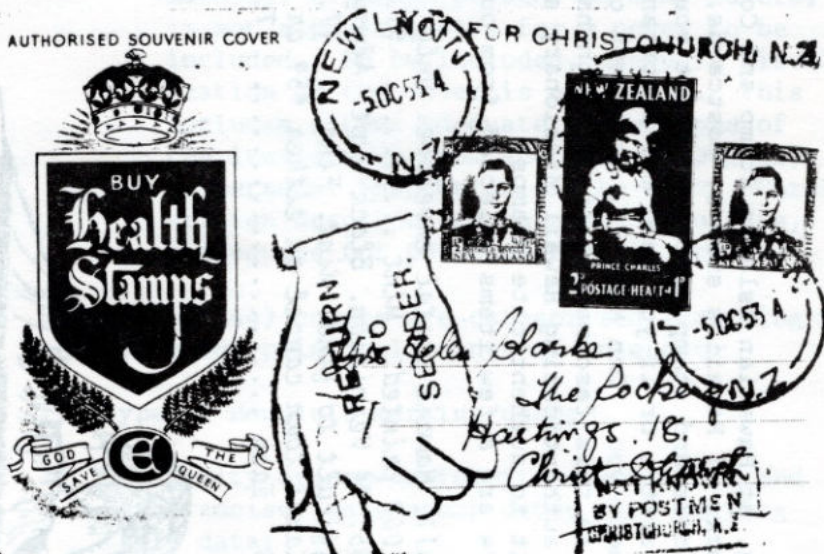 AUTHORISED SOUVENIR COVER
NOT FOR CHRISTCHURCH, N.Z.
NEW LYNN
-5 OC 53 4
N.Z.
BUY
Health
Stamps
GOD
SAVE
THE
QUEEN
NEW ZEALAND
PRINCE CHARLES
2D POSTAGE-HEALTH 1D
-5 OC 53 4
N.Z.
RETURN
TO
SENDER
Helen Clarke
The Rockery
Hastings. 18.
Christ Church.
NOT KNOWN
BY POSTMEN
CHRISTCHURCH, N.Z.